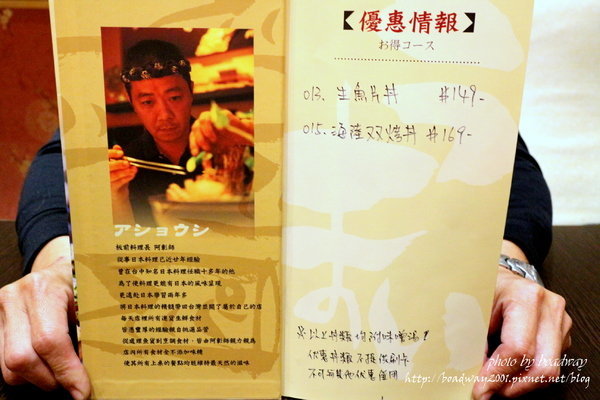 アショウシ
板前料理長 阿彰師
從事日本料理已近廿年經驗
曾在台中知名日本料理任職十多年的他
為了使料理更能有日本的風味呈現
更遠赴日本學習兩年多
將日本料理的精髓帶回台灣並開了屬於自己的店
每天店裡所有運貨生鮮食材
皆憑豐厚的經驗親自挑選品管
從處理魚貨到烹調食材，皆由阿彰師親力親為
店內所有食材全不添加味精
使其所有上桌的餐點均能維持最天然的滋味
【優惠情報】
お得コース
013、生魚片丼 #149-
015、海陸双烤丼 #169-
※以上丼類 均附味噌湯！
優惠丼類 不提供刷卡
不可與其他優惠併用
photo by boadway
http://boadway2001.pixnet.net/blog